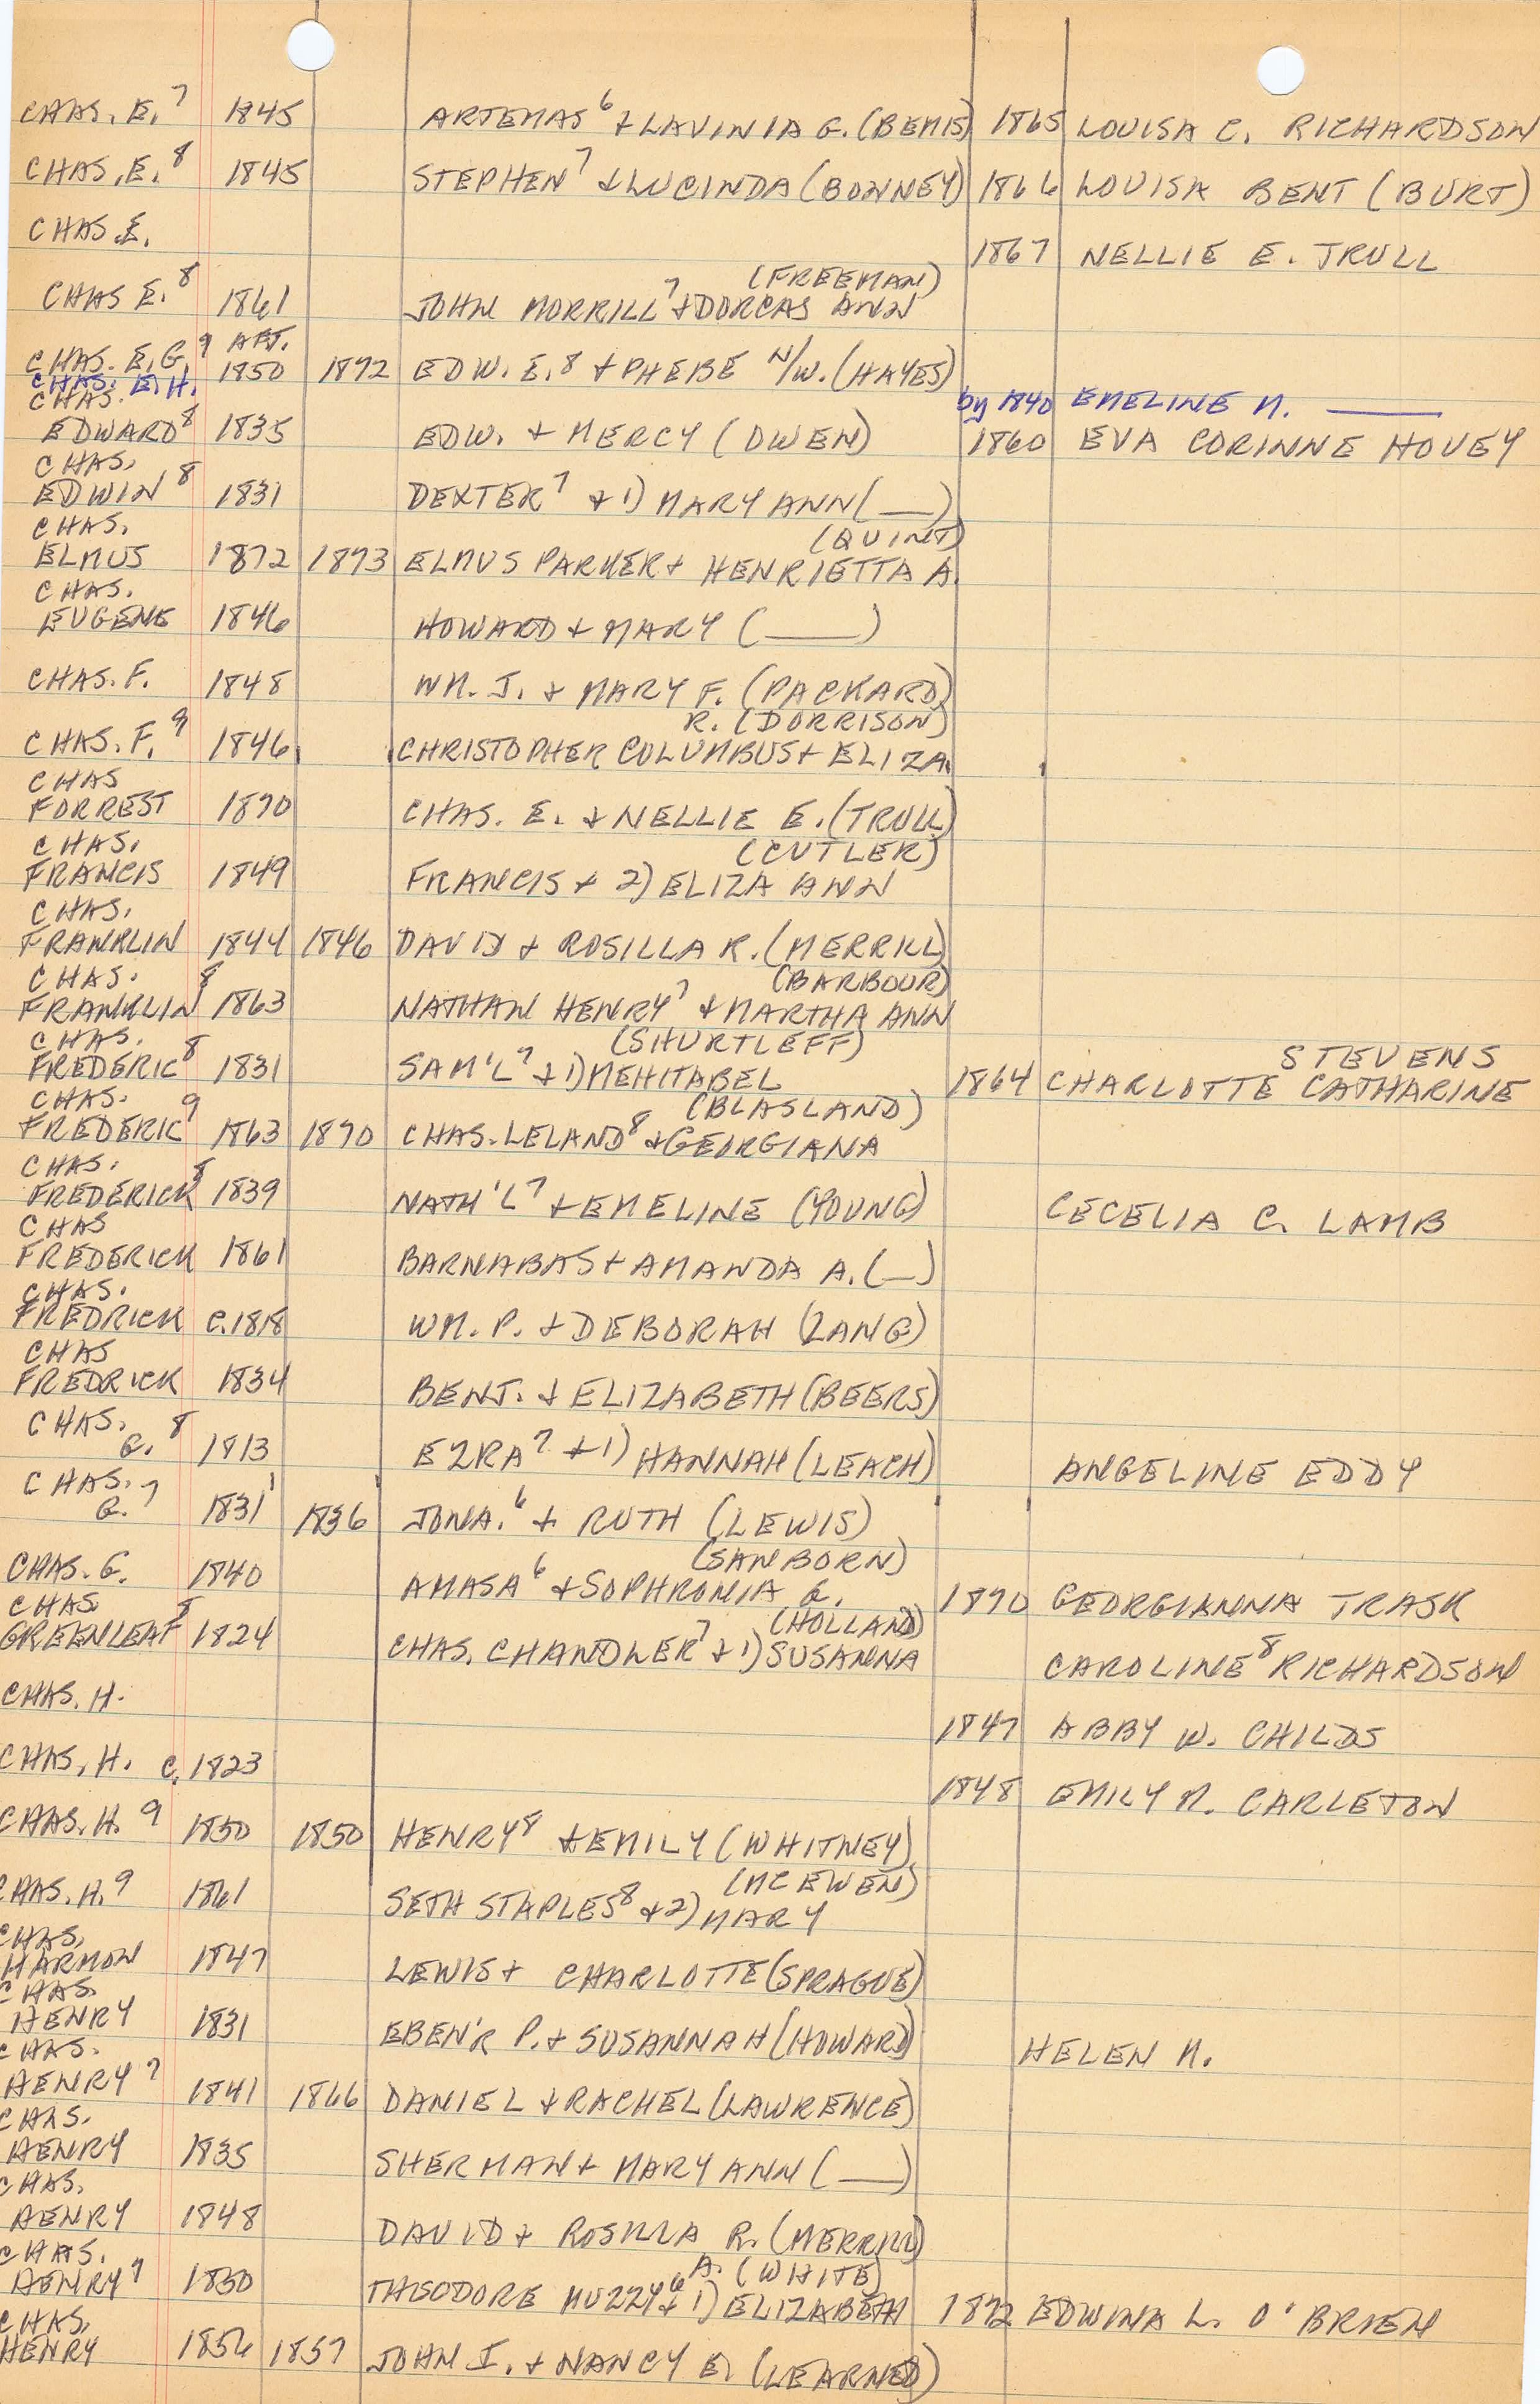 CHAS. E.7 1845 ARTEMAS6 + LAVINIA G. (BEMIS) 1865 LOUISA C. RICHARDSON
CHAS. E.8 1845 STEPHEN7 + LUCINDA (BONNEY) 1866 LOUISA BENT (BURT)
CHAS. E. 1867 NELLIE E. TRULL
(FREEMAN)
CHAS E.8 1861 JOHN MORRILL7 + DORCAS ANN
AFT.
CHAS. E. G.9 1850 1872 EDW. E.8 + PHEBE N/W. (HAYES)
CHAS. E. H. by 1840 EMELINE M. ____
CHAS.
EDWARD8 1835 EDW. + MERCY (OWEN) 1860 EVA CORINNE HOVEY
CHAS.
EDWIN8 1831 DEXTER7 + 1) MARY ANN (__)
CHAS. (QUINT)
ELMUS 1872 1873 ELMUS PARKER + HENRIETTA A.
CHAS.
EUGENE 1846 HOWARD + MARY (____)
CHAS. F. 1848 WM. J. + MARY F. (PACKARD)
R. (DORRISON)
CHAS. F.9 1846 CHRISTOPHER COLUMBUS + ELIZA
CHAS
FORREST 1870 CHAS. E. + NELLIE E. (TRULL)
CHAS. (CUTLER)
FRANCIS 1849 FRANCIS + 2) ELIZA ANN
CHAS.
FRANKLIN 1844 1846 DAVID + ROSILLA R. (MERRILL)
CHAS. (BARBOUR)
FRANKLIN8 1863 NATHAN HENRY7 + MARTHA ANN
CHAS. (SHURTLEFF) STEVENS
FREDERIC8 1831 SAM'L7 + 1) MEHITABEL 1864 CHARLOTTE CATHARINE
CHAS. (BLASLAND)
FREDERIC9 1863 1870 CHAS. LELAND8 + GEORGIANA
CHAS.
FREDERICK8 1839 NATH'L7 + EMELINE (YOUNG) CECELIA C. LAMB
CHAS
FREDERICK 1861 BARNABAS + AMANDA A. (__)
CHAS.
FREDRICK C. 1818 WM. P. + DEBORAH (LANG)
CHAS
FREDRICK 1834 BENJ. + ELIZABETH (BEERS)
CHAS.
G.8 1813 EZRA7 + 1) HANNAH (LEACH) ANGELINE EDDY
CHAS.
G.7 1831 1836 JONA.6 + RUTH (LEWIS)
(SANBORN)
CHAS. G. 1840 AMASA6 + SOPHRONIA G. 1870 GEORGIANNA TRASK
CHAS (HOLLAND)
GREENLEAF8 1824 CHAS. CHANDLER7 + 1) SUSANNA CAROLINE8 RICHARDSON
CHAS. H. 1847 ABBY W. CHILDS
CHAS. H. C. 1823 1848 EMILY M. CARLETON
CHAS. H.9 1850 1850 HENRY8 + EMILY (WHITNEY)
(MCEWEN)
CHAS. H.9 1861 SETH STAPLES8 + 2) MARY
CHAS.
HARMON 1847 LEWIS + CHARLOTTE (SPRAGUE)
CHAS.
HENRY 1831 EBEN'R P. + SUSANNAH (HOWARD) HELEN M.
CHAS.
HENRY7 1841 1866 DANIEL + RACHEL (LAWRENCE)
CHAS.
HENRY 1835 SHERMAN + MARY ANN (___)
CHAS.
HENRY 1848 DAVID + ROSILLA R. (MERRILL)
CHAS. A. (WHITE)
HENRY7 1850 THEODORE MUZZY6 + 1) ELIZABETH 1872 EDWINA L. O'BRIEN
CHAS.
HENRY 1856 1857 JOHN I. + NANCY E. (LEARNED)